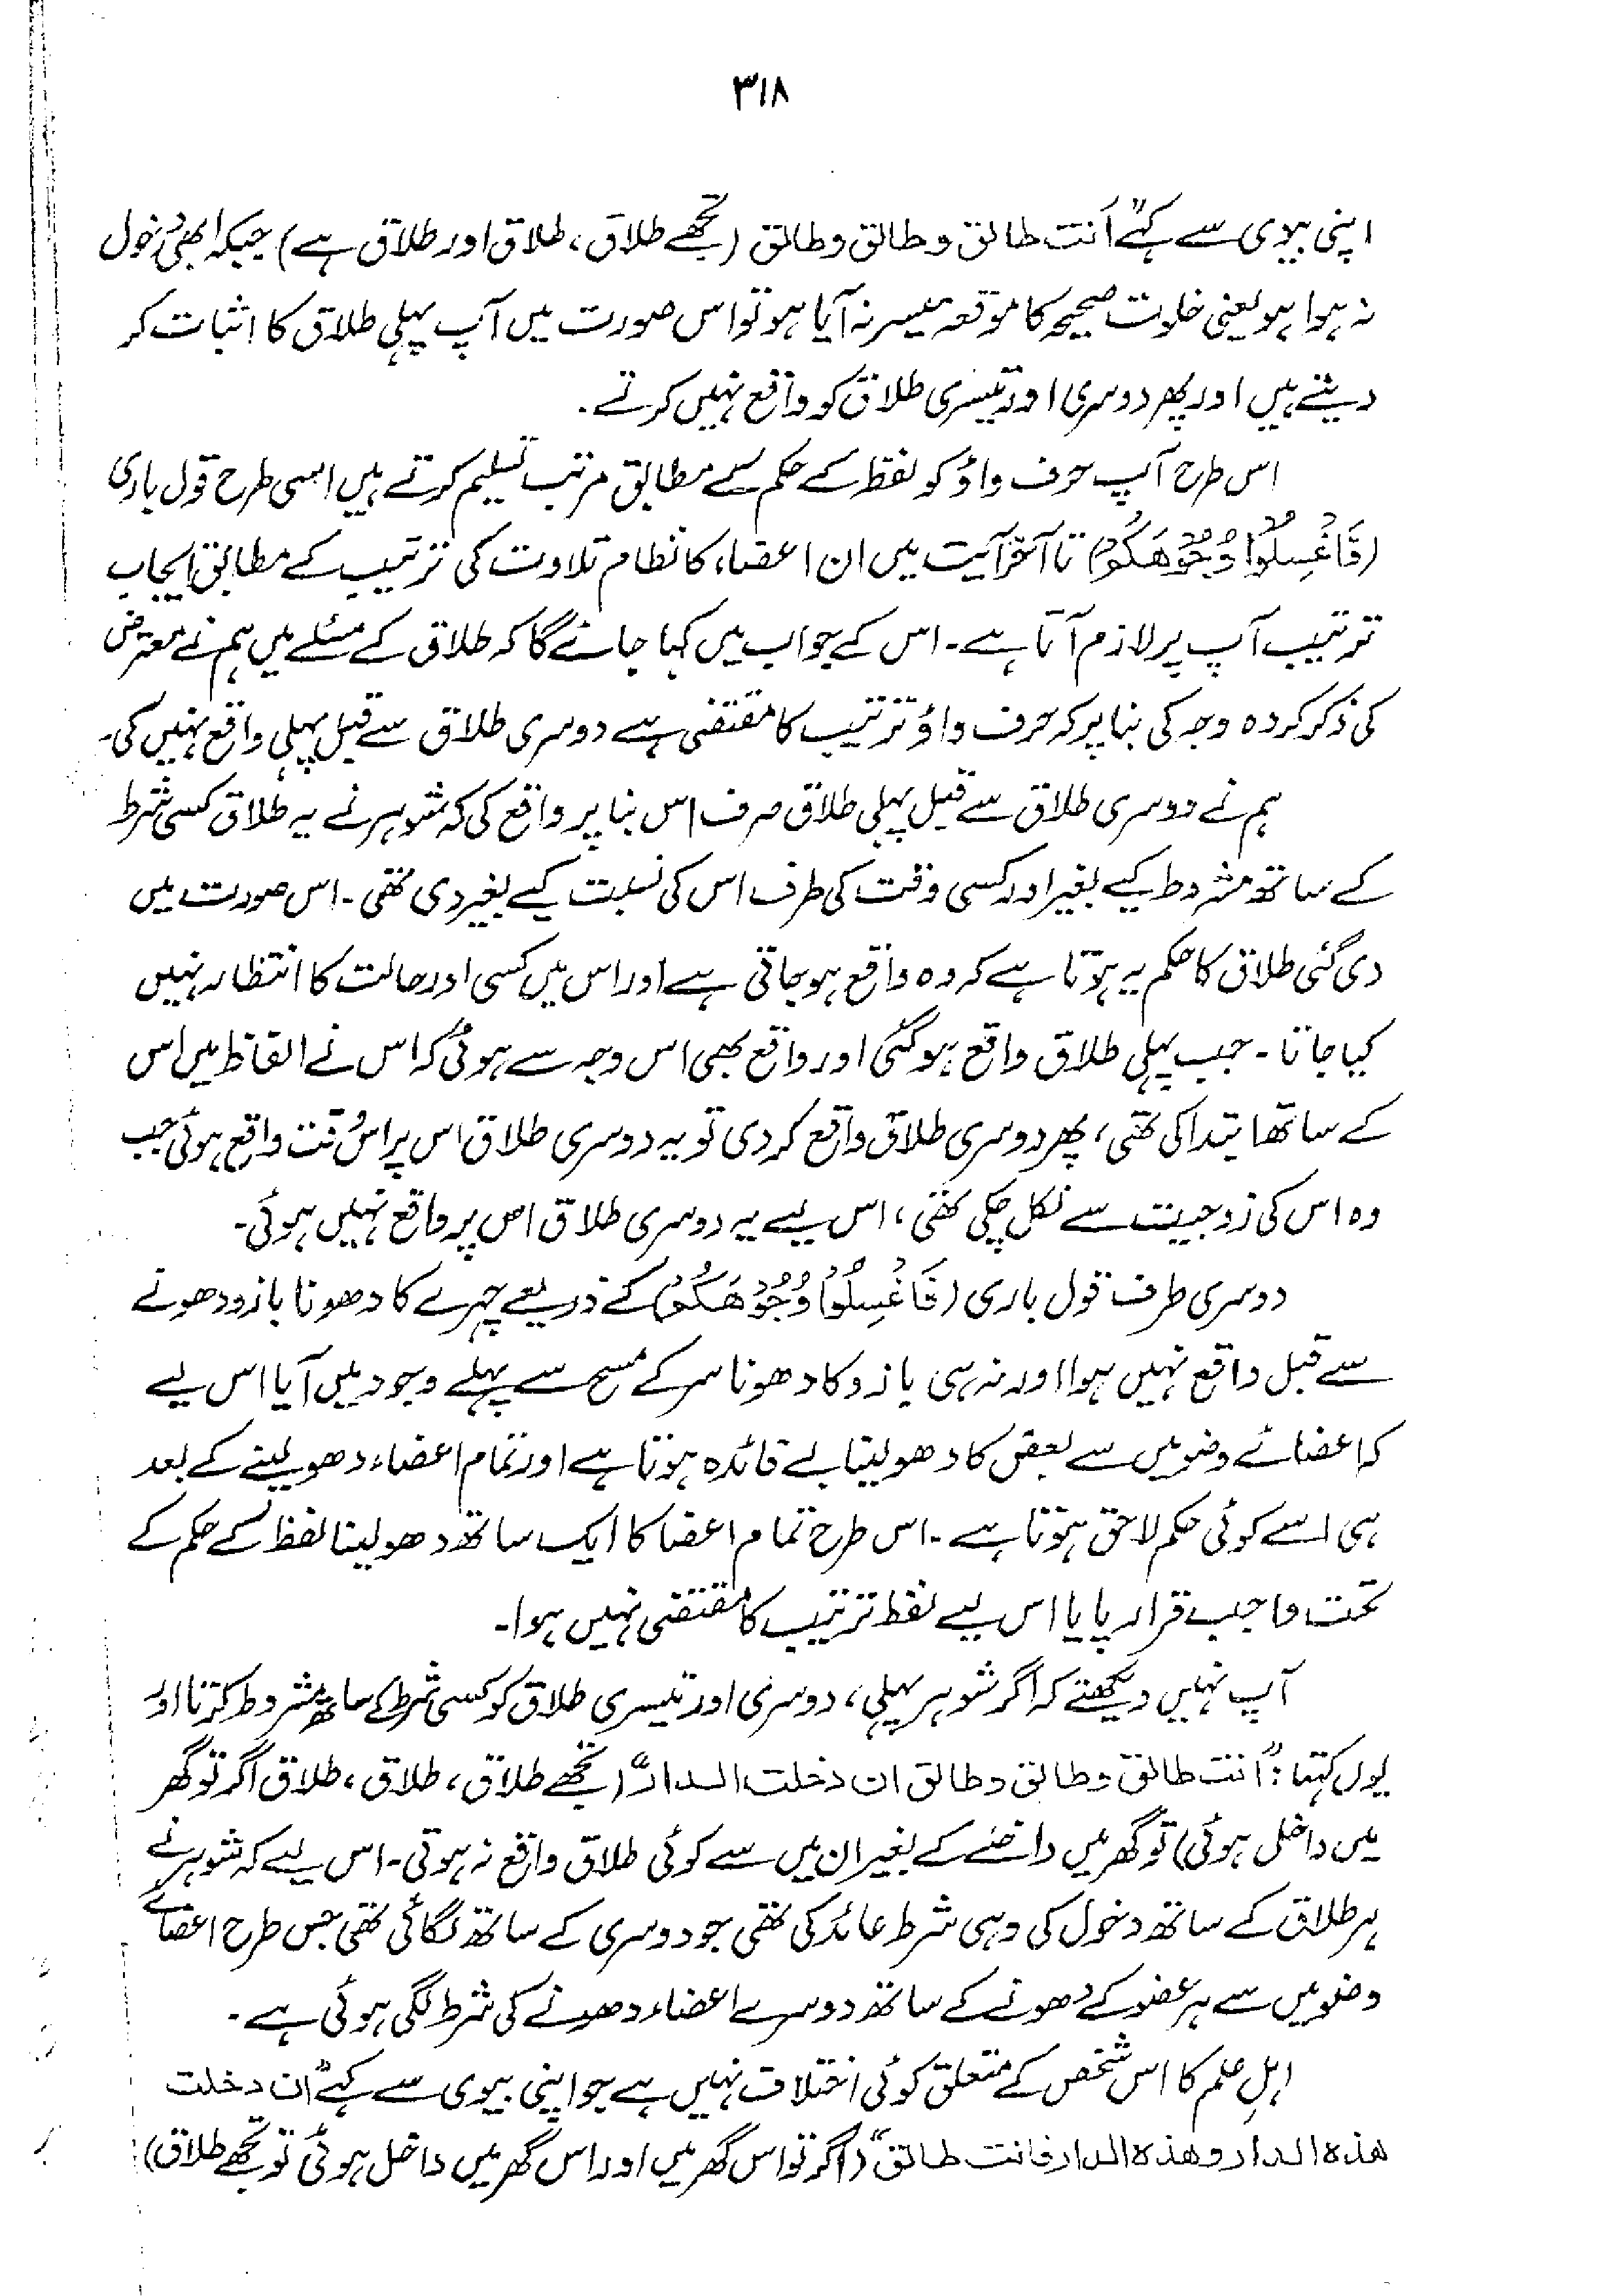 ۳۱۸
اپنی بیوی سے کہے "اَنت طالق وطالق وطالق (تجھے طلاق، طلاق اور طلاق ہے) جبکہ ابھی دخول
نہ ہوا ہو یعنی خلوت صحیحہ کا موقعہ میسر نہ آیا ہو تو اس صورت میں آپ پہلی طلاق کا اثبات کر
دیتے ہیں اور پھر دوسری اور تیسری طلاق کو واقع نہیں کرتے۔
اس طرح آپ حرف واؤ کو لفظ کے حکم کے مطابق مرتب تسلیم کرتے ہیں اسی طرح قول باری
(فَاغْسِلُوْا وُجُوْهَكُمْ) تا آخر آیت میں ان اعضاء کا نظام تلاوت کی ترتیب کے مطابق ایجاب
ترتیب آپ پر لازم آتا ہے۔ اس کے جواب میں کہا جائے گا کہ طلاق کے مسئلے میں ہم نے معترض
کی ذکر کردہ وجہ کی بنا پر کہ حرف واؤ ترتیب کا مقتضی ہے دوسری طلاق سے قبل پہلی واقع نہیں کی۔
ہم نے دوسری طلاق سے قبل پہلی طلاق صرف اس بنا پر واقع کی کہ شوہر نے یہ طلاق کسی شرط
کے ساتھ مشروط کیے بغیر اور کسی وقت کی طرف اس کی نسبت کیے بغیر دی تھی۔ اس صورت میں
دی گئی طلاق کا حکم یہ ہوتا ہے کہ وہ واقع ہو جاتی ہے اور اس میں کسی اور حالت کا انتظار نہیں
کیا جاتا۔ جب پہلی طلاق واقع ہو گئی اور واقع بھی اس وجہ سے ہوئی کہ اس نے الفاظ میں اس
کے ساتھ ابتدا کی تھی، پھر دوسری طلاق واقع کر دی تو یہ دوسری طلاق اس پر اس وقت واقع ہوئی جب
وہ اس کی زوجیت سے نکل چکی تھی، اس لیے یہ دوسری طلاق اس پر واقع نہیں ہوئی۔
دوسری طرف قول باری (فَاغْسِلُوْا وُجُوْهَكُمْ) کے ذریعے چہرے کا دھونا بازو دھونے
سے قبل واقع نہیں ہوا اور نہ ہی بازو کا دھونا سر کے مسح سے پہلے وجود میں آیا اس لیے
کہ اعضائے وضو میں سے بعض کا دھو لینا بے فائدہ ہوتا ہے اور تمام اعضاء دھو لینے کے بعد
ہی اسے کوئی حکم لاحق ہوتا ہے۔ اس طرح تمام اعضا کا ایک ساتھ دھو لینا لفظ کے حکم کے
تحت واجب قرار پایا اس لیے لفظ ترتیب کا مقتضی نہیں ہوا۔
آپ نہیں دیکھتے کہ اگر شوہر پہلی، دوسری اور تیسری طلاق کو کسی شرط کے ساتھ مشروط کرتا اور
یوں کہتا: "انت طالق وطالق وطالق ان دخلت الدار" (تجھے طلاق، طلاق، طلاق اگر تو گھر
میں داخل ہوئی) تو گھر میں داخلے کے بغیر ان میں سے کوئی طلاق واقع نہ ہوتی۔ اس لیے کہ شوہر نے
ہر طلاق کے ساتھ دخول کی وہی شرط عائد کی تھی جو دوسری کے ساتھ لگائی تھی جس طرح اعضائے
وضو میں سے ہر عضو کے دھونے کے ساتھ دوسرے اعضاء دھونے کی شرط لگی ہوئی ہے۔
اہلِ علم کا اس شخص کے متعلق کوئی اختلاف نہیں ہے جو اپنی بیوی سے کہے "ان دخلت
هذه الدار وهذه الدار فانت طالق" (اگر تو اس گھر میں اور اس گھر میں داخل ہوئی تو تجھے طلاق)